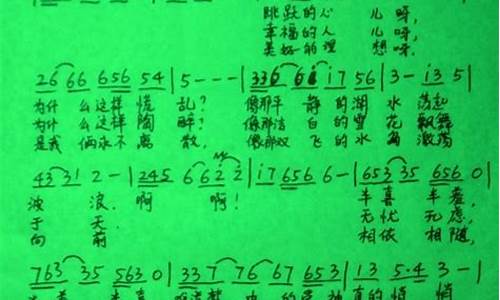 跳跃的心 儿呀,
幸福的人 儿呀,
美好的理 想呀.
26 66 656 54 | 5 - - - | 336 6i i7 56 | 3 - i3 5 |
为什 么这样 慌 乱? 像那平 静 的湖 水 荡起
为什 么这样 陶 醉? 像那洁 白 的雪 花 飘舞
是我 俩永不 离 散, 像那双 飞 的水 鸟 激荡
43 31 2 - | 245 6 62 2 | i7 656 6 - | 653 35 656 0 |
波 浪. 啊 啊! 半喜 半羞,
于 天. 无忧 无虑,
向 前 相依 相随,
763 35 563 0 | 337 76 67 653 | 13 5·4 3 - |
的 悄 悄